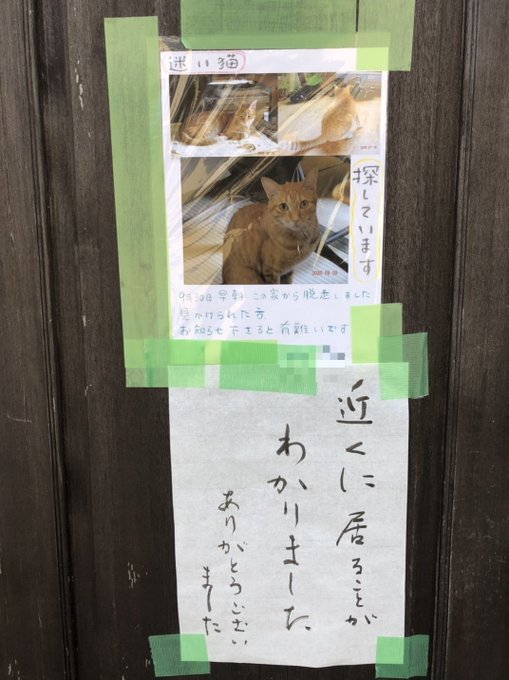 迷い猫
探しています
2020 09 09
9月30日 早朝 この家から脱走しました
見かけられた方
お知らせ下さると有難いです
近くに居ることが
わかりました
ありがとうござい
ました